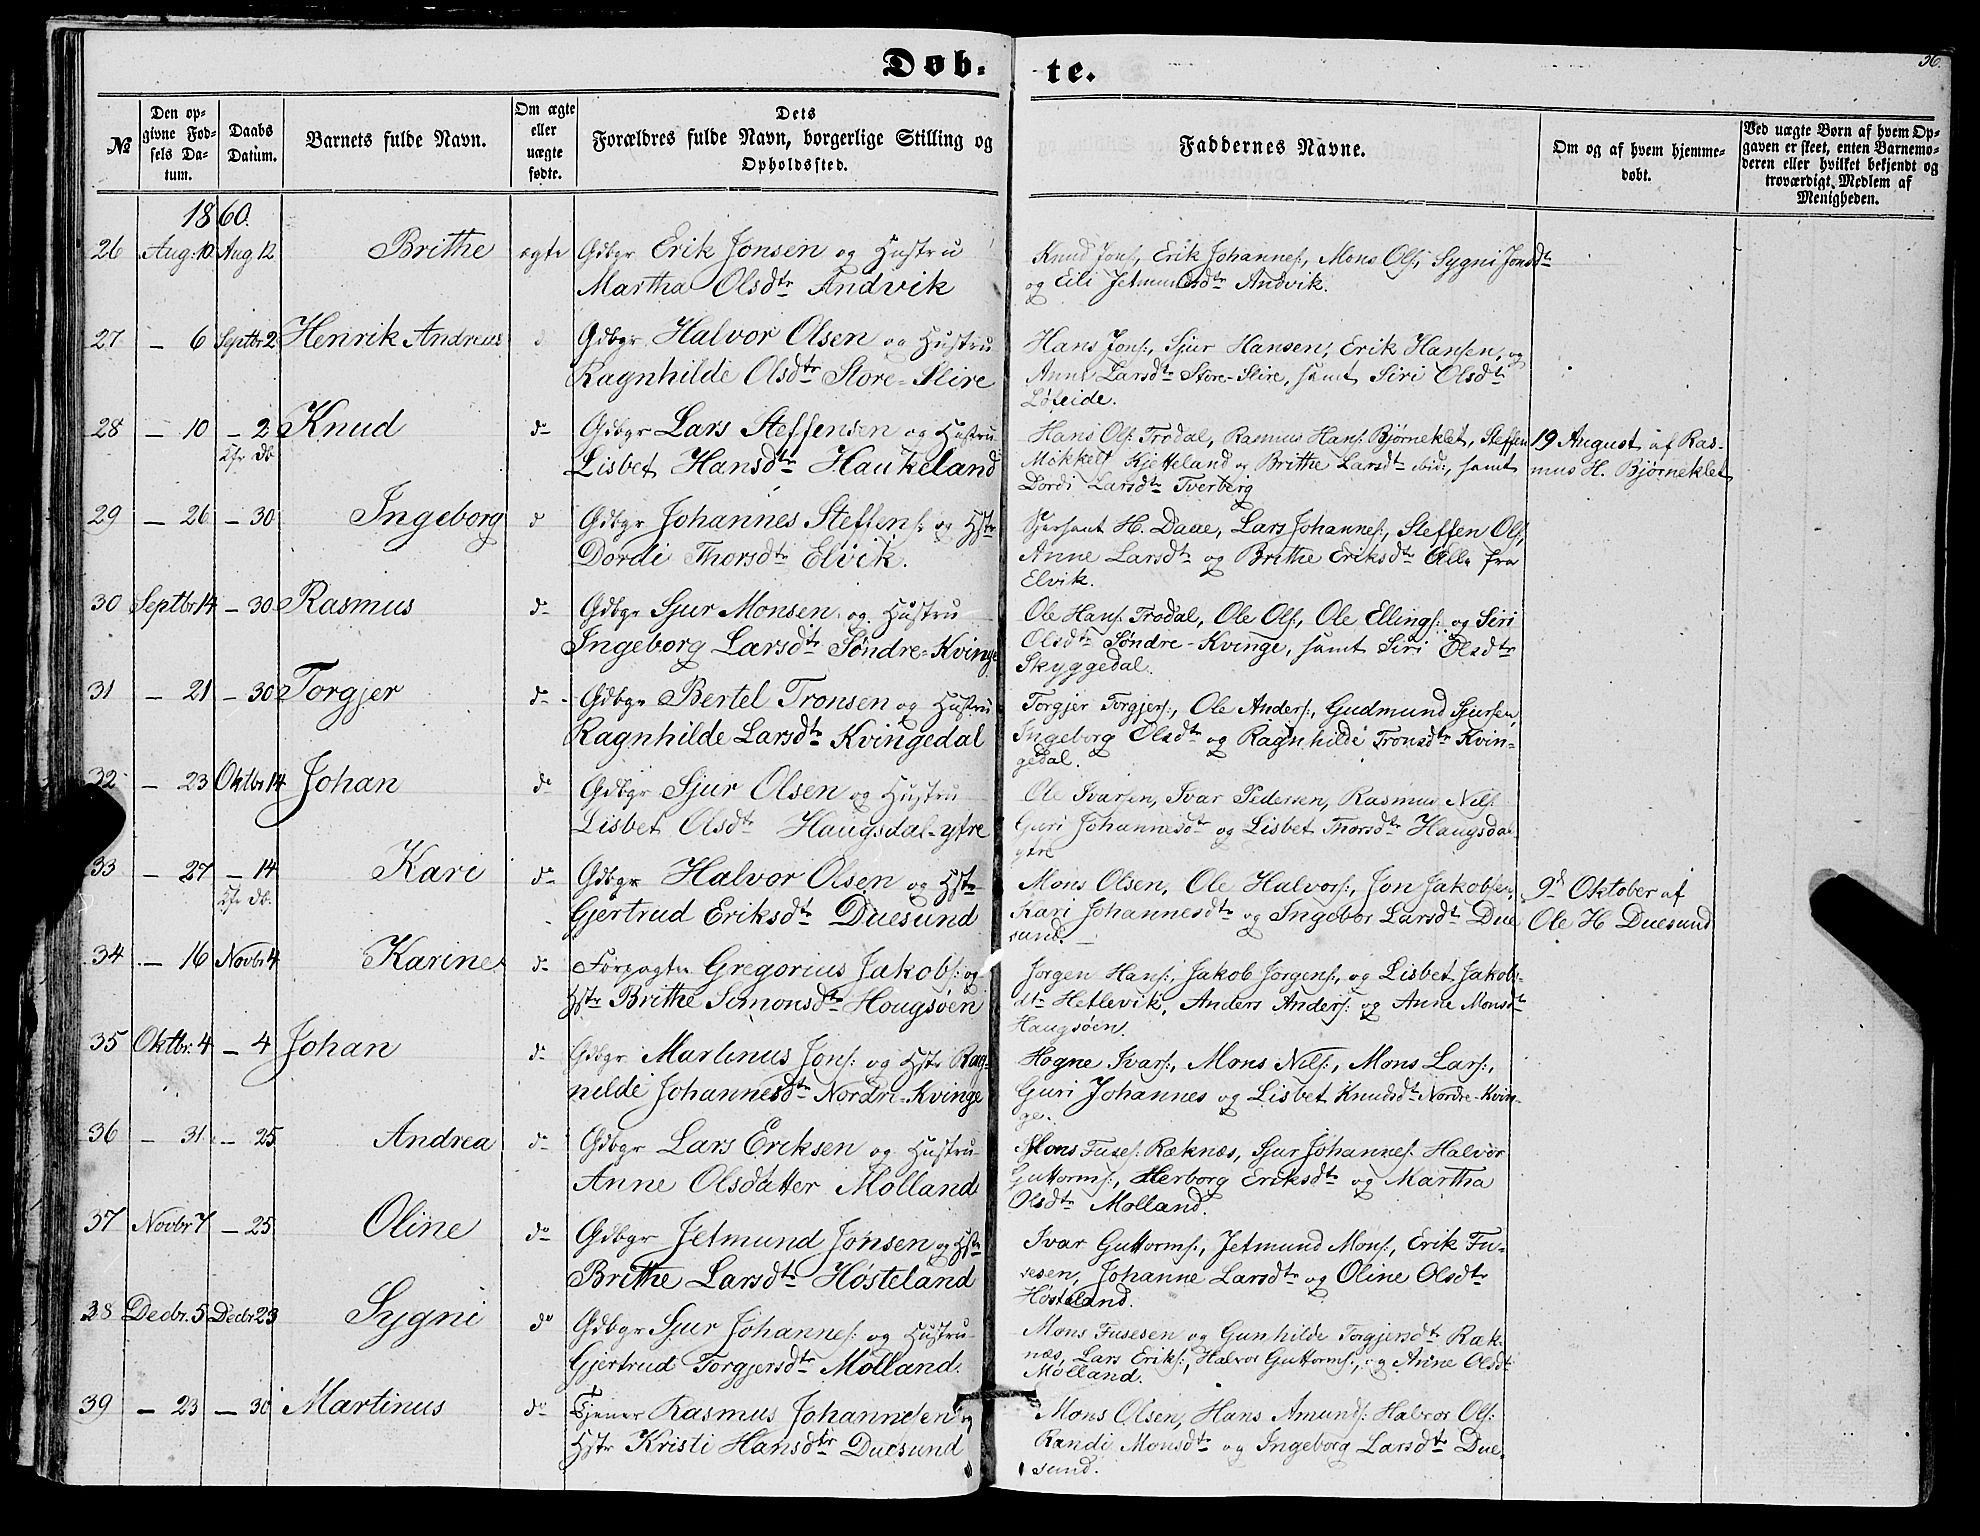 Døb-
te.
36.
№
Den op-
givne Fød-
sels Da-
tum.
Daabs
Datum.
Barnets fulde Navn.
Om ægte
eller
uægte
fødte.
Dets
Forældres fulde Navn, borgerlige Stilling og
Opholdssted.
Faddernes Navne.
Om og af hvem hjemme-
døbt.
Ved uægte Børn af hvem Op-
gaven er skeet, enten Barnemo-
deren eller hvilket bekjendt og
troværdigt Medlem af
Menigheden.
1860.
26 Aug: 10 Aug 12 Brithe ægte Gdbgr Erik Jonsen og Hustru
Martha Olsdtr Andvik
Knud Jons:, Erik Johannes:, Mons Ols:, Sygni Jonsdtr
og Eili Jetmundsdtr Andvik.
27 – 6 Septbr 2 Henrik Andreas d Gdbgr Halvor Olsen og Hustru
Ragnhilde Olsdtr Store-Slire
Hans Jons:, Sjur Hansen, Erik Hansen, og
Anne Larsdtr Store-Slire, samt Siri Olsdtr
Løseide.
28 – 10 – 2 Knud do Gdbgr Lars Steffensen og Hustru
Lisbet Hansdtr Haukeland
Hans Ols: Trodal, Rasmus Hans: Bjørneklet, Steffen
Mikkels: Kjetteland og Brithe Larsdtr ibid:, samt
Dordi Larsdtr Tverberg
19 August af Ras-
mus H. Bjørneklet
29 – 26 – 30 Ingeborg d Gdbgr Johannes Steffens: og Hstr
Dordi Thorsdtr Elvik.
Sersjant H. Daae, Lars Johannes:, Steffen Ols:,
Anne Larsdtr og Brithe Eriksdtr Alle fra
Elvik.
30 Septbr 14 – 30 Rasmus do Gdbgr Sjur Monsen og Hustru
Ingeborg Larsdtr Søndre-Kvinge
Ole Hans: Trodal, Ole Ols:, Ole Ellings: og Siri
Olsdtr Søndre-Kvinge, samt Siri Olsdtr
Skyggedal.
31 – 21 – 30 Torgjer do Gdbgr Bertel Tronsen og Hustru
Ragnhilde Larsdtr Kvingedal
Torgjer Torgjers:, Ole Anders:, Gudmund Sjursen,
Ingeborg Olsdtr og Ragnhilde Tronsdtr Kvin-
gedal.
32 – 23 Oktbr 14 Johan do Gdbgr Sjur Olsen og Hustru
Lisbet Olsdtr Haugsdal-ytre
Ole Ivarsen, Ivar Pedersen, Rasmus Nils:
Guri Johannesdtr og Lisbet Thorsdtr Haugsdal
ytre
33 – 27 – 14 Kari do Gdbgr Halvor Olsen og Hstr
Gjertrud Eriksdtr Duesund
Mons Olsen, Ole Halvors:, Jon Jakobsen,
Kari Johannesdtr og Ingebor Larsdtr Due
sund.
9d Oktober af
Ole H Duesund
34 – 16 Novbr 4 Karine do Forpagter Gregorius Jakobs: og
Hstr Brithe Simonsdtr Hougsøen
Jørgen Hans:, Jakob Jørgens:, og Lisbet Jakobs-
dtr Hetlevik, Anders Anders: og Anne Monsdtr
Haugsøen.
35 Oktbr: 4 – 4 Johan do Gdbgr Martinus Jons: og Hstr Rag-
nilde Johannesdtr Nordre-Kvinge
Hogne Ivars:, Mons Nils:, Mons Lars:,
Guri Johannes og Lisbet Knudsdtr Nordre-Kvin-
ge.
36 – 31 – 25 Andrea do Gdbgr Lars Eriksen og Hustru
Anne Olsdatter Molland
Mons Fuses: Ræknæs, Sjur Johannes: Halvor
Guttorms:, Herborg Eriksdtr og Martha
Olsdtr Molland.
37 Novbr 7 – 25 Oline do Gdbgr Jetmund Jonsen og Hstr
Brithe Larsdtr Høsteland
Ivar Guttorms:, Jetmund Mons:, Erik Fu-
sesen, Johanne Larsdtr og Oline Olsdtr
Høsteland.
38 Decbr. 5 Decbr 23 Sygni do Gdbgr Sjur Johannes: og Hustru
Gjertrud Torgjersdtr Molland.
Mons Fusesen og Gunhilde Torgjersdtr Ræk-
næs, Lars Eriks:, Halvor Guttorms:, og Anne Olsdtr
Mølland.
39 – 23 – 30 Martinus do Tjener Rasmus Johannesen og
Hstr Kristi Hansdtr Duesund
Mons Olsen, Hans Amunds: Halvor Ols:
Randi Monsdtr og Ingeborg Larsdtr Due-
sund.